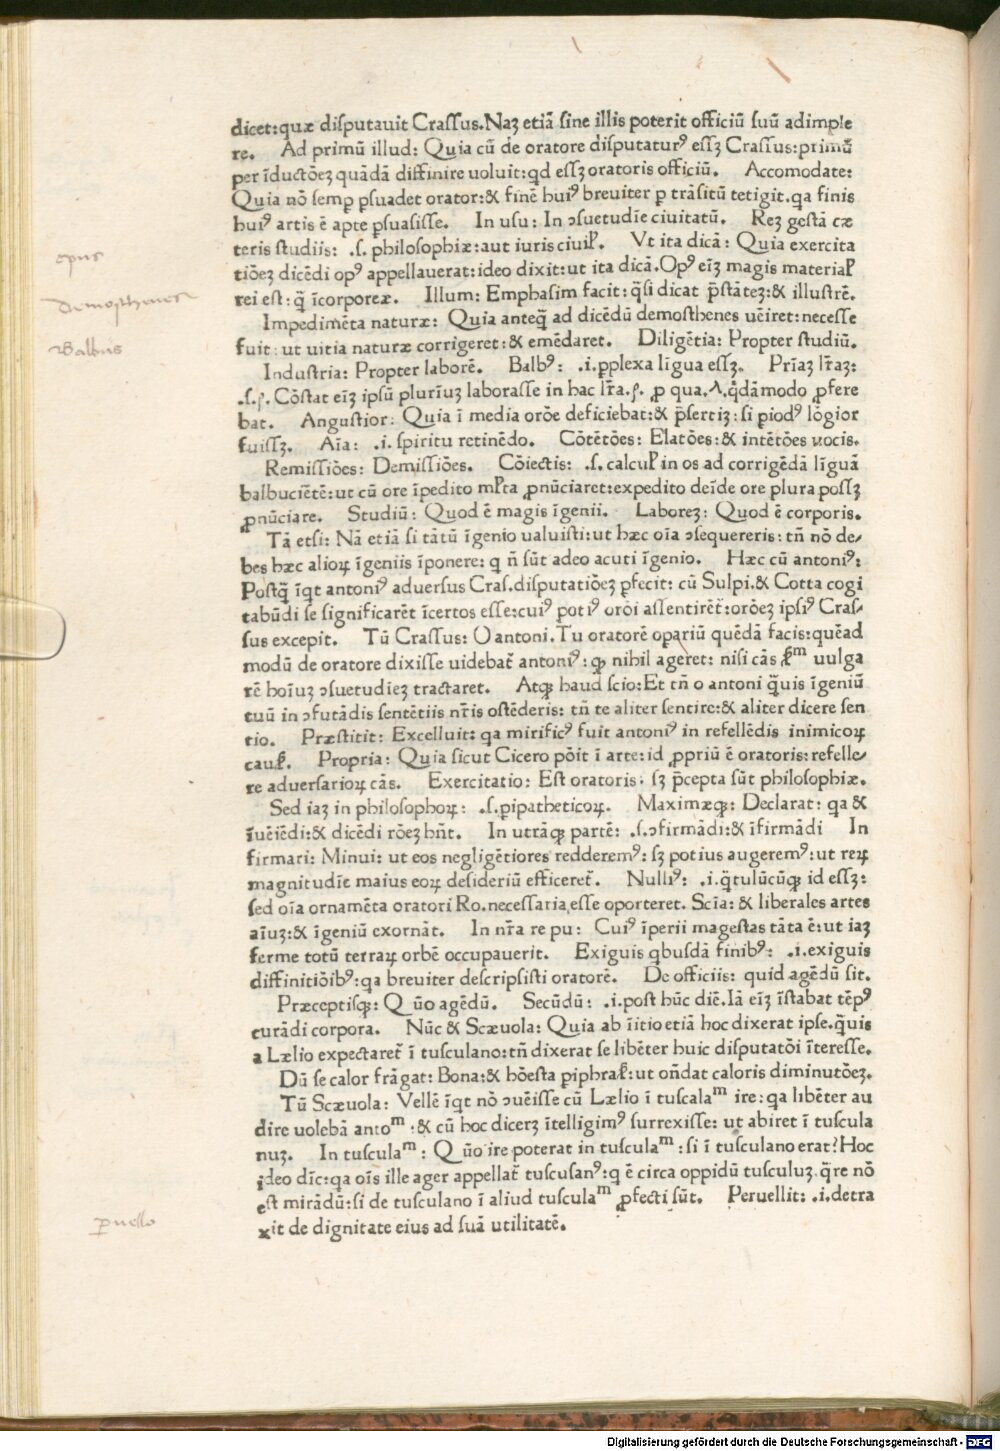 dicet:quæ disputauit Crassus.Naꝫ etiā sine illis poterit officiū suū adimple
re. Ad primū illud: Quia cū de oratore disputaturꝰ essꝫ Crassus:primū
per īductōeꝫ quādā diffinire uoluit:qd essꝫ oratoris officiū. Accomodate:
Quia nō semꝑ ꝑsuadet orator:& finē huiꝰ breuiter ꝑ trāsitū tetigit.qa finis
huiꝰ artis ē apte ꝑsuasisse. In usu: In ↄsuetudīe ciuitatū. Reꝫ gestā cæ
teris studiis: .s. philosophiæ:aut iuris ciuiꝉ. Vt ita dicā: Quia exercita
epus
tiōeꝫ dicēdi opꝰ appellauerat:ideo dixit:ut ita dicā.Opꝰ eīꝫ magis materiaꝉ
rei est: q̄ īcorporeæ. Illum: Emphasim facit: q̄si dicat p̄stāteꝫ:& illustrē.
Demosthenes
Impedimēta naturæ: Quia anteq̄ ad dicēdū demosthenes uēiret:necesse
fuit:ut uitia naturæ corrigeret:& emēdaret. Diligētia: Propter studiū.
Balbus
Industria: Propter laborē. Balbꝰ: .i.ꝑplexa līgua essꝫ. Prīaꝫ lr̄aꝫ:
.s.ꝭ. Cōstat eīꝫ ipsū plurīuꝫ laborasse in hac lr̄a.ꝭ. ꝑ qua.ʌ.q̇dāmodo ꝓfere
bat. Angustior: Quia ī media orōe deficiebat:& p̄sertiꝫ:si piodꝰ lōgior
fuissꝫ. Aīa: .i. spiritu retinēdo. Cōtētōes: Elatōes:& intētōes uocis.
Remissiōes: Demissiōes. Cōiectis: .s. calcuꝉ in os ad corrigēdā līguā
balbuciētē:ut cū ore īpedito mꝉta ꝓnūciaret:expedito deīde ore plura possꝫ
ꝓnūciare. Studiū: Quod ē magis īgenii. Laboreꝫ: Quod ē corporis.
Tā etsi: Nā etiā si tātū īgenio ualuisti:ut hæc oīa ↄsequereris: tn̄ nō de/
bes hæc alioꝝ īgeniis īponere: q n̄ sūt adeo acuti īgenio. Hæc cū antoniꝰ:
Postq̄ īqt antoniꝰ aduersus Cras.disputatiōeꝫ ꝑfecit: cū Sulpi.& Cotta cogi
tabūdi se significarēt īcertos esse:cuiꝰ potiꝰ orōi assentirēt̄:orōeꝫ ipsiꝰ Cras/
sus excepit. Tū Crassus: O antoni.Tu oratorē opariū quēdā facis:quēad
modū de oratore dixisse uidebat̄ antoniꝰ: qꝫ nihil ageret: nisi cās uulga
rē hoīuꝫ ↄsuetudieꝫ tractaret. Atqꝫ haud scio:Et tn̄ o antoni q̄uis īgeniū
tuū in ↄfutādis sentētiis nr̄is ostēderis: tn̄ te aliter sentire:& aliter dicere sen
tio. Præstitit: Excelluit: qa mirificꝰ fuit antoniꝰ in refellēdis inimicoꝝ
cauꝭ. Propria: Quia sicut Cicero pōit ī arte:id ꝓpriū ē oratoris:refelle/
re aduersarioꝝ cās. Exercitatio: Est oratoris: sꝫ p̄cepta sūt philosophiæ.
Sed iaꝫ in philosophoꝝ: .s.ꝑipatheticoꝝ. Maximæqꝫ: Declarat: qa &
īuēiēdi:& dicēdi rōeꝫ hn̄t. In utrāqꝫ partē: .s.ↄfirmādi:& īfirmādi In
firmari: Minui: ut eos negligētiores redderemꝰ: sꝫ potius augeremꝰ:ut reꝝ
magnitudīe maius eoꝝ desideriū efficeret̄. Nulliꝰ: .i.q̄tulūcūqꝫ id essꝫ:
sed oīa ornamēta oratori Ro.necessaria esse oporteret. Scīa: & liberales artes
aīuꝫ:& īgeniū exornāt. In nr̄a re pu: Cuiꝰ īperii magestas tāta ē:ut iaꝫ
ferme totū terraꝝ orbē occupauerit. Exiguis qbusdā finibꝰ: .i.exiguis
diffinitiōibꝰ:qa breuiter descripsisti oratorē. De officiis: quid agēdū sit.
Præceptisqꝫ: Qūo agēdū. Secūdū: .i.post hūc diē.Iā eīꝫ īstabat tēpꝰ
curādi corpora. Nūc & Scæuola: Quia ab īitio etiā hoc dixerat ipse.q̄uis
a Lælio expectaret̄ ī tusculano:tn̄ dixerat se libēter huic disputatōi īteresse.
Dū se calor frāgat: Bona:& hōesta ꝑiphraꝭ:ut on̄dat caloris diminutōeꝫ.
Tū Scæuola: Vellē īqt nō ↄuēisse cū Lælio ī tuscalaᵐ ire:qa libēter au
dire uolebā antoᵐ:& cū hoc dicerꝫ ītelligimꝰ surrexisse: ut abiret ī tuscula
nuꝫ. In tusculaᵐ: Qūo ire poterat in tusculaᵐ:si ī tusculano erat?Hoc
ideo dīc:qa oīs ille ager appellat̄ tuscusanꝰ:q ē circa oppidū tusculuꝫ.q̄re nō
est mirādū:si de tusculano ī aliud tusculaᵐ ꝓfecti sūt. Peruellit: .i.detra
peruello
xit de dignitate eius ad suā utilitatē.
Digitalisierung gefördert durch die Deutsche Forschungsgemeinschaft - DFG